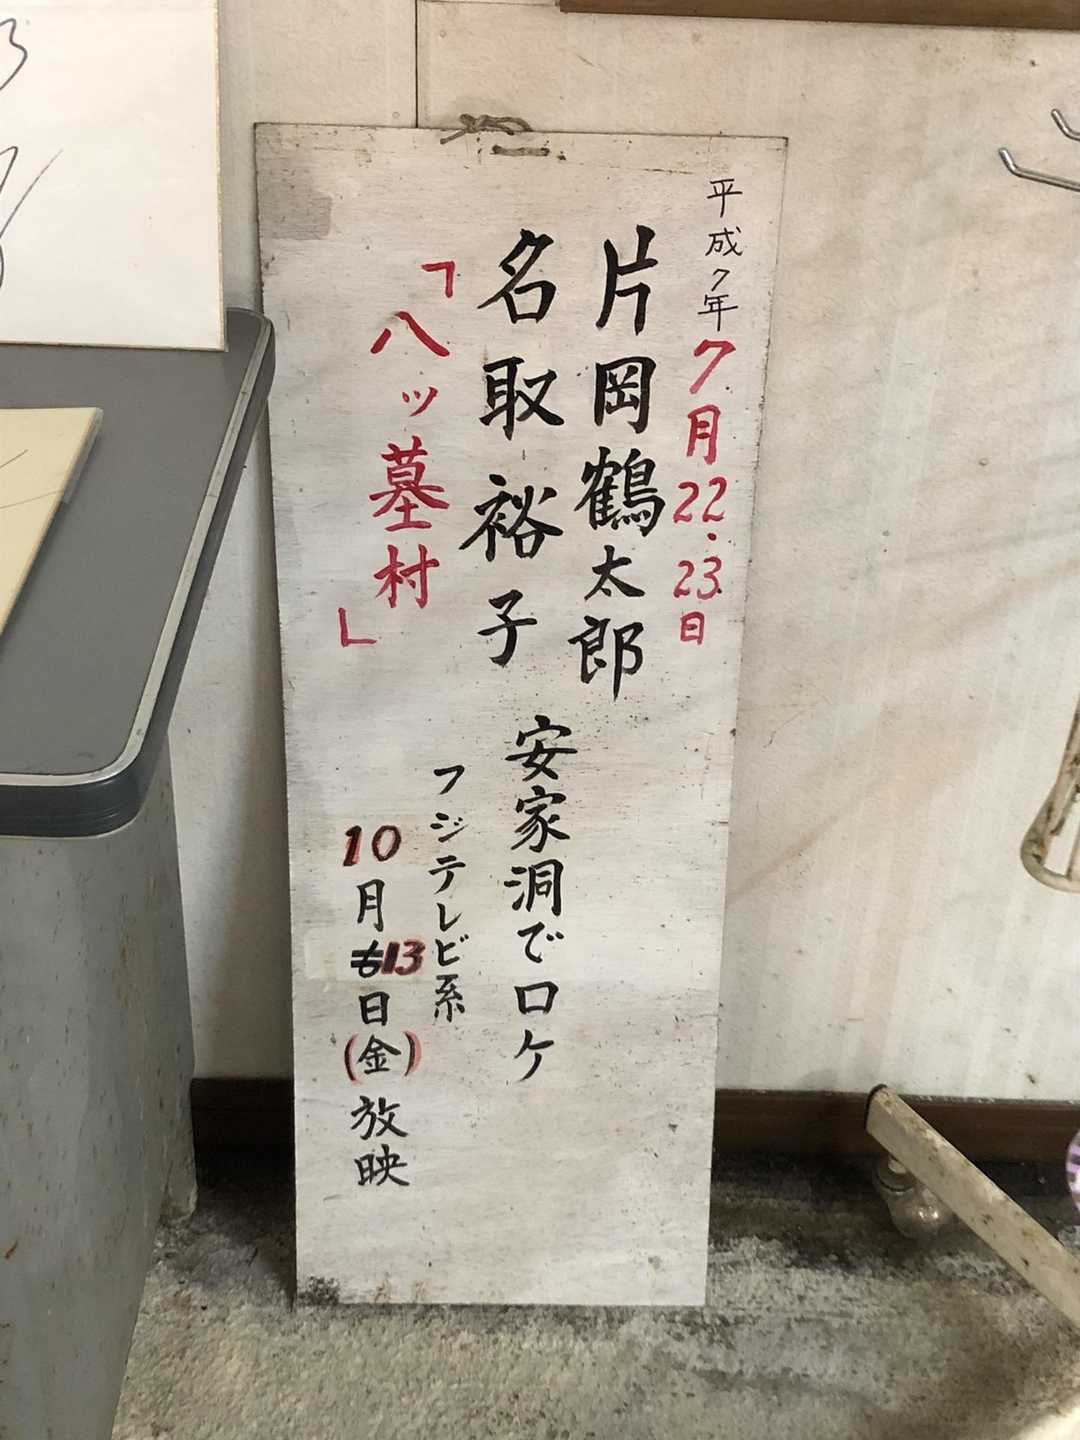 平成7年7月22・23日
片岡鶴太郎
名取裕子
安家洞でロケ
「八ッ墓村」
フジテレビ系
10月13日(金)放映